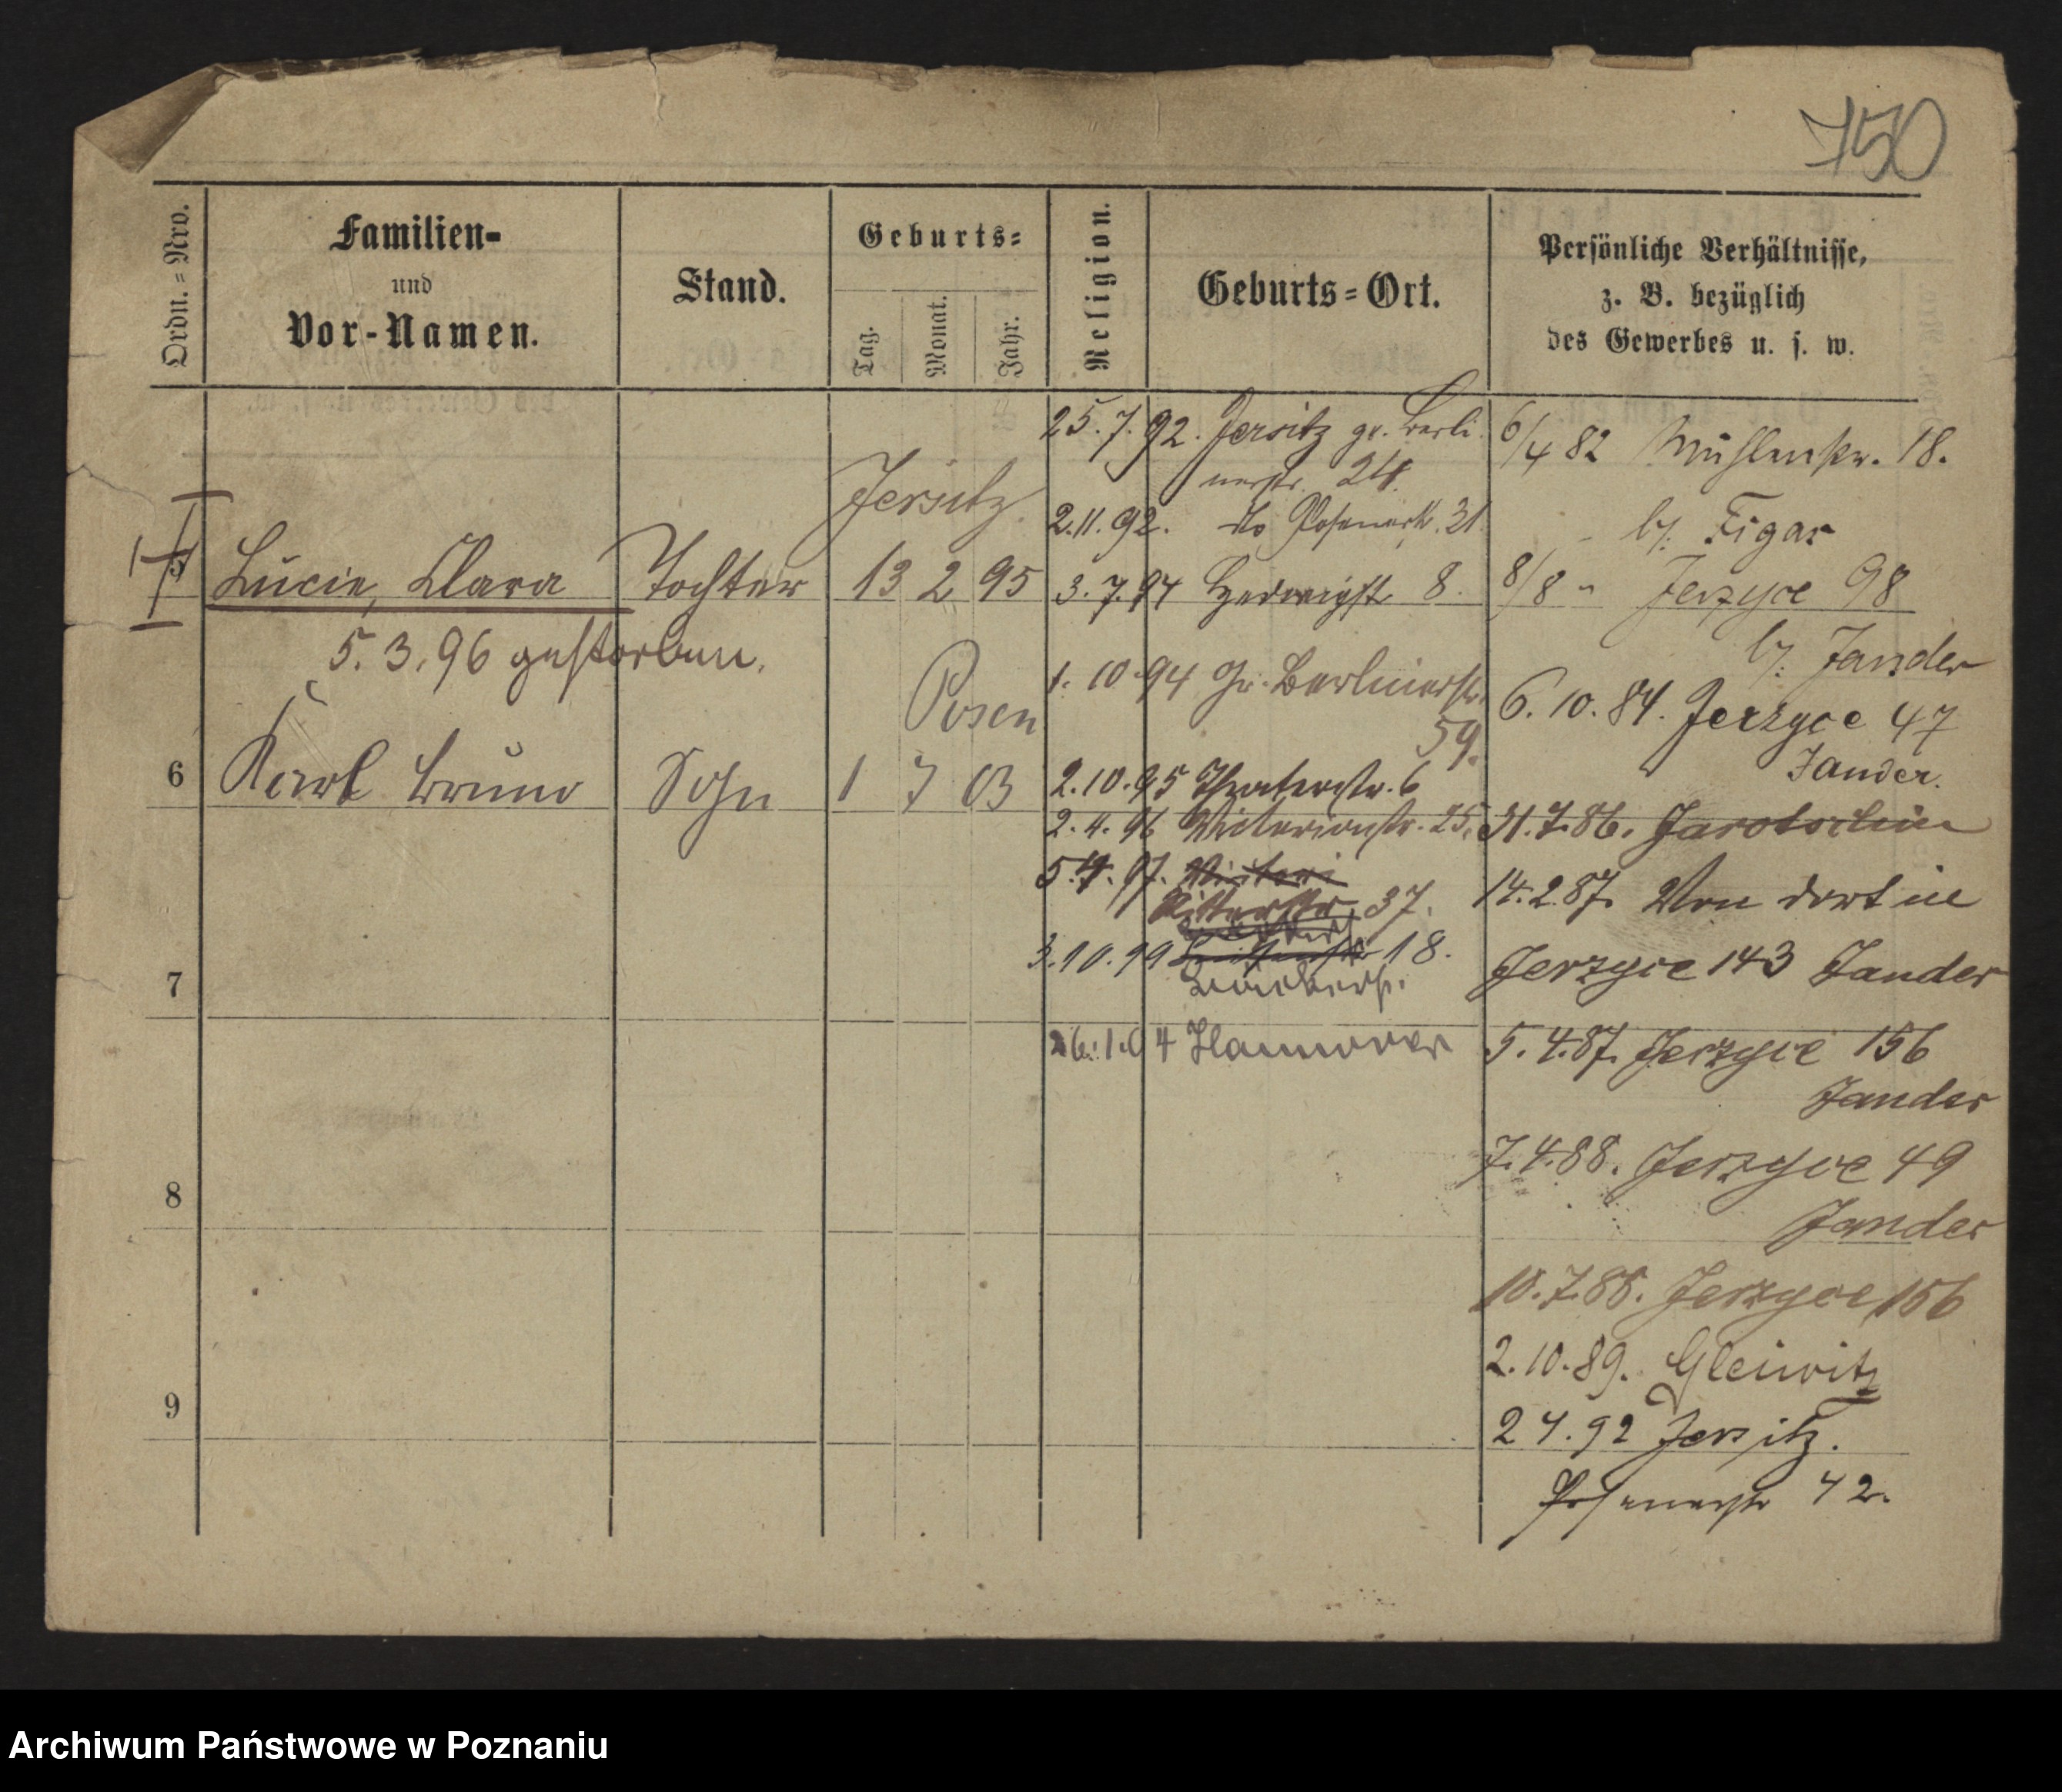 750
Ordn.=Nro.
Familien-
und
Vor-Namen.
Stand.
Geburts=
Tag.
Monat.
Jahr.
Religion.
Geburts=Ort.
Persönliche Verhältnisse,
z. B. bezüglich
des Gewerbes u. s. w.
Jersitz
5 Lucie, Clara Tochter 13 2 95
5. 3. 96 gestorben.
Posen
6 Karl Bruno Sohn 1 7 03
7
8
9
25. 7. 92. Jersitz gr. Berli
nerstr. 24.
2. 11. 92. do Posenerstr. 31
3. 7. 94 Hedwigstr. 8.
1. 10. 94 Gr. Berlinerstr.
59.
2. 10. 95 Theaterstr. 6
2. 4. 96 Victoriastr. 25.
5. 4. 97. Victori
Ritterstr. 37.
3. 10. 99 18.
26. 1. 04 Hannover
6/4 82 Mühlenstr. 18.
b/. Figas
8/8 " Jerzyce 98
b/. Jander
6. 10. 84. Jerzyce 47
Jander.
31. 7. 86. Jarotschin
14. 2. 87. Von dort in
Jerzyce 143 Jander
5. 4. 87. Jerzyce 156
Jander
7. 4. 88. Jerzyce 49
Jander
10. 7. 88. Jerzyce 156
2. 10. 89. Gleiwitz
2 4. 92 Jersitz.
Posenerstr 42.
Archiwum Państwowe w Poznaniu